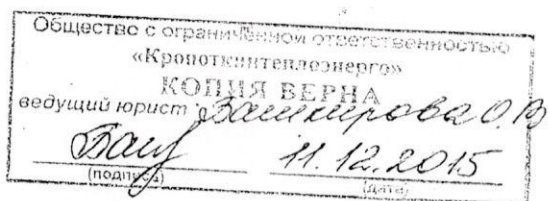 Общество с ограниченной ответственностью
«Кропоткинтеплоэнерго»
КОПИЯ ВЕРНА
ведущий юрист Башкирова О.В
Баш 11.12.2015
(подпись) (дата)